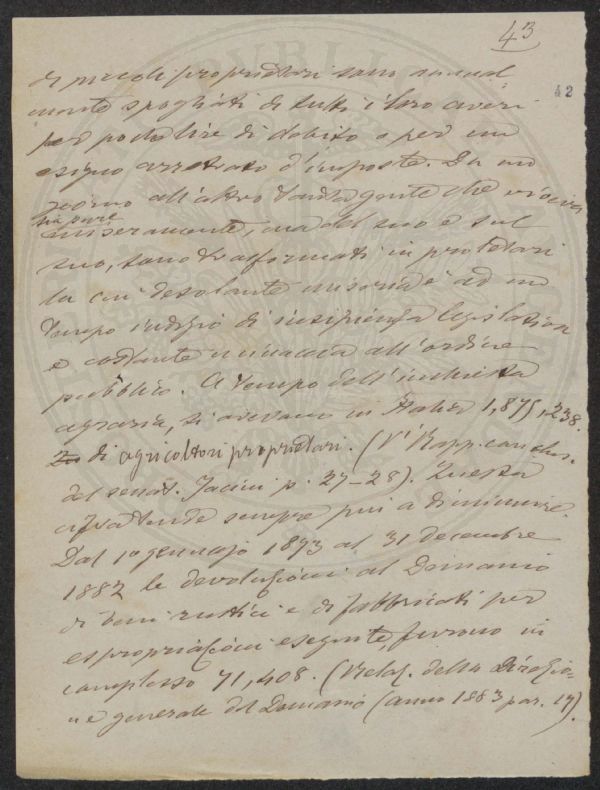 43
42
di piccoli proprietari sono annual
mente spogliati di tutti i loro averi
per poche lire di debito o per un
esiguo arretrato d'imposte. Da un
giorno all'altro tanta gente che viveva
sia pure
miseramente, ma del suo e sul
suo, sono trasformati in proletari
la cui desolante miseria è ad un
tempo indizio di insipienza legislativa
e costante minaccia all'ordine
pubblico. A tempo dell'inchiesta
agraria, si avevano in Italia 1,875,238
di agricoltori proprietari. (V' Rapp. conclus.
del senat. Jacini p. 27-28). Questa
cifra tende sempre più a diminuire.
Dal 1º gennajo 1873 al 31 decembre
1882 le devoluzioni al Demanio
di beni rustici e di fabbricati per
espropriazioni eseguite, furono in
complesso 71,408. (Relaz. della Direzio-
ne generale del Demanio (anno 1883 par. 17).